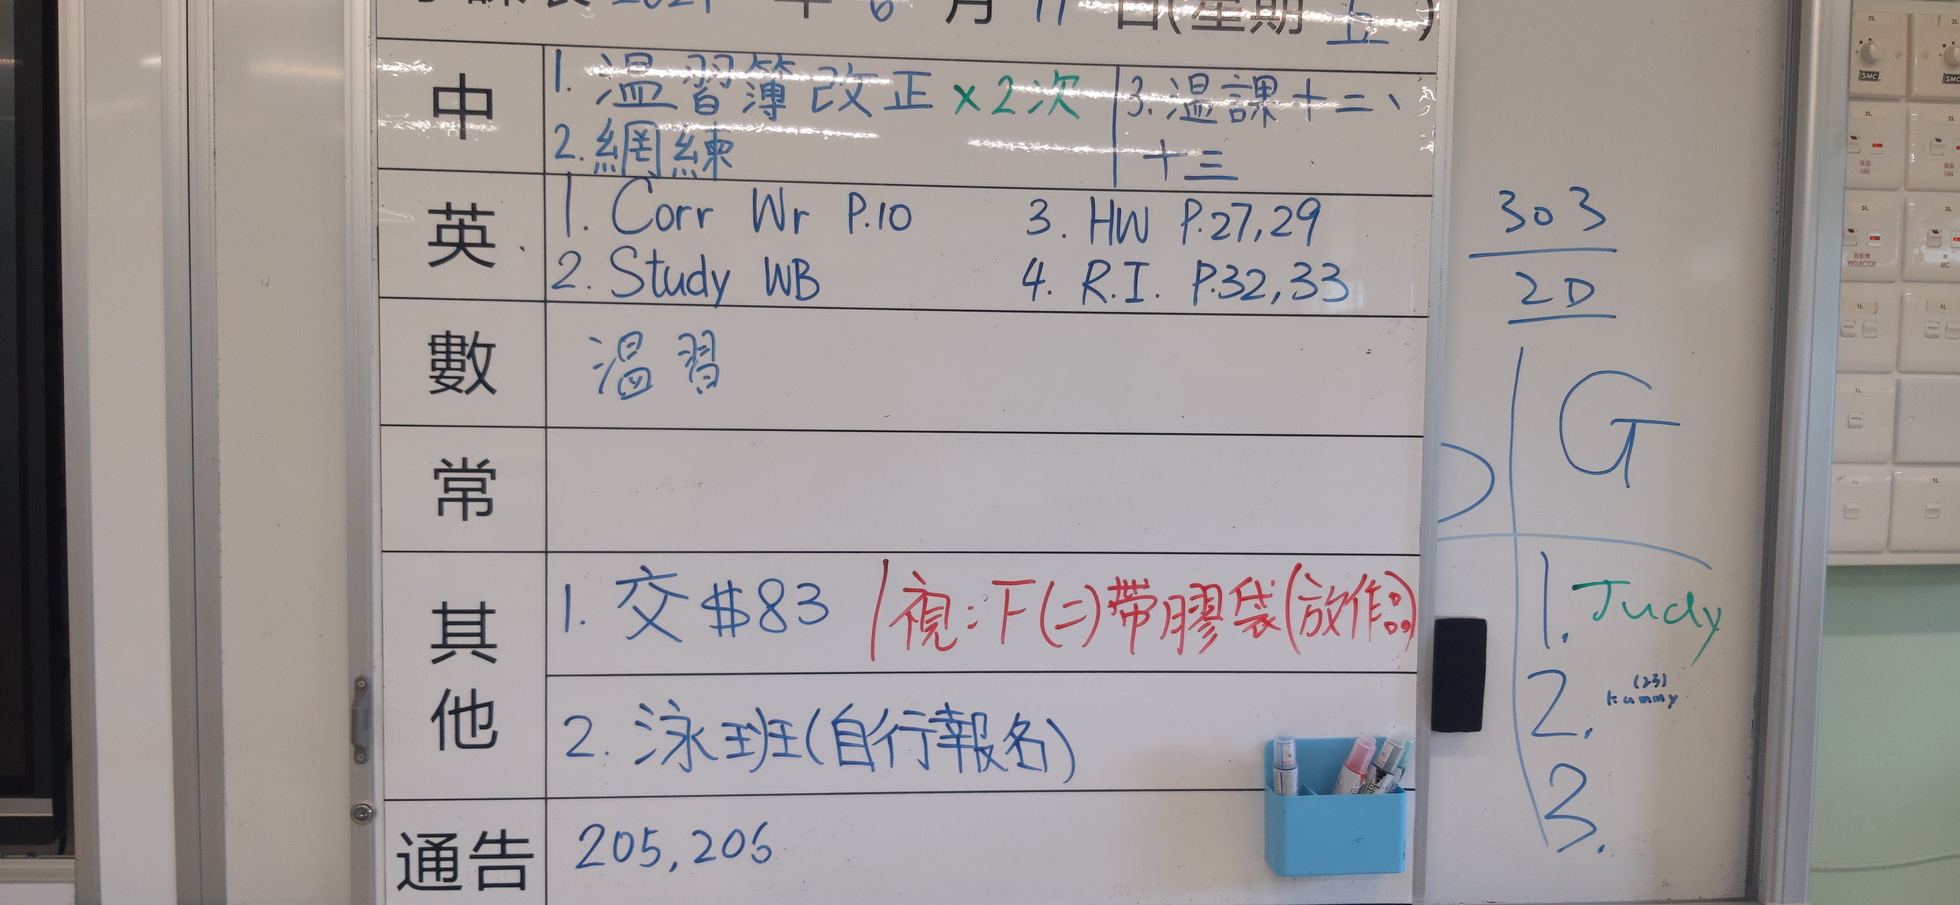 年 6 月 11 日(星期 五)
中
1. 溫習簿改正 ×2次
2. 網練
3. 溫課十二、
十三
英
1. Corr Wr P.10
2. Study WB
3. HW P.27,29
4. R.I. P.32,33
數
溫習
常
其他
1. 交 $83
視:下(二)帶膠袋(放作品)
2. 泳班(自行報名)
通告
205,206
303
2D
G
1. Judy
2. (23)
kammy
3.